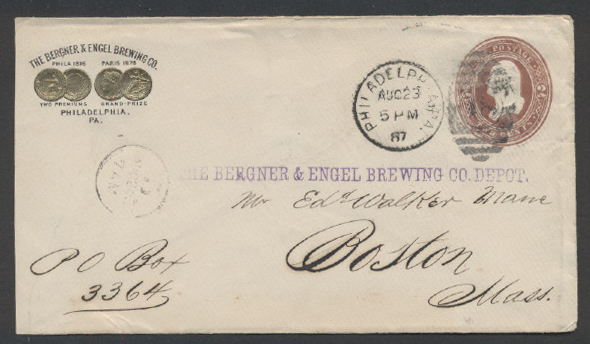 THE BERGNER & ENGEL BREWING CO.
PHILA 1876 PARIS 1878
TWO PREMIUMS GRAND-PRIZE
PHILADELPHIA,
PA.
PHILADELPHIA PA.
AUG 23
5 PM
87
POSTAGE
THE BERGNER & ENGEL BREWING CO. DEPOT.
Mr Edd Walker
Boston
Mass.
P O Box
3364